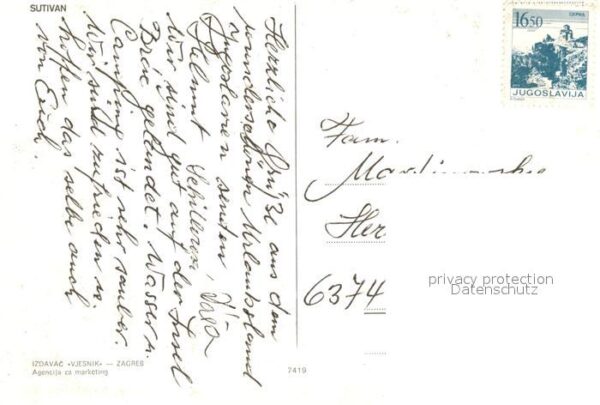 SUTIVAN
Herzliche Grüße aus dem
wunderschönen Urlaubsland
Jugoslavien senden
Helmut
Wir sind gut auf der Insel
Brač gelandet. Wasser u.
Camping ist sehr sauber.
Wir sind zufrieden u.
hoffen das selbe auch
von Euch.
IZDAVAČ «VJESNIK» — ZAGREB
Agencija za marketing
7419
16.50
JUGOSLAVIJA
Fam.
Her
6374
privacy protection
Datenschutz